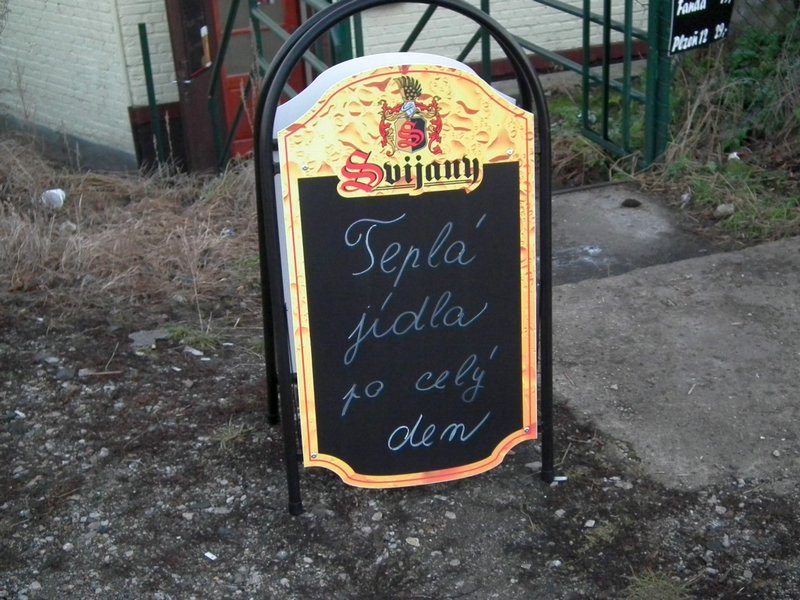 Fanda
Plzeň 12 29,-
S
Svijany
Teplá
jídla
po celý
den